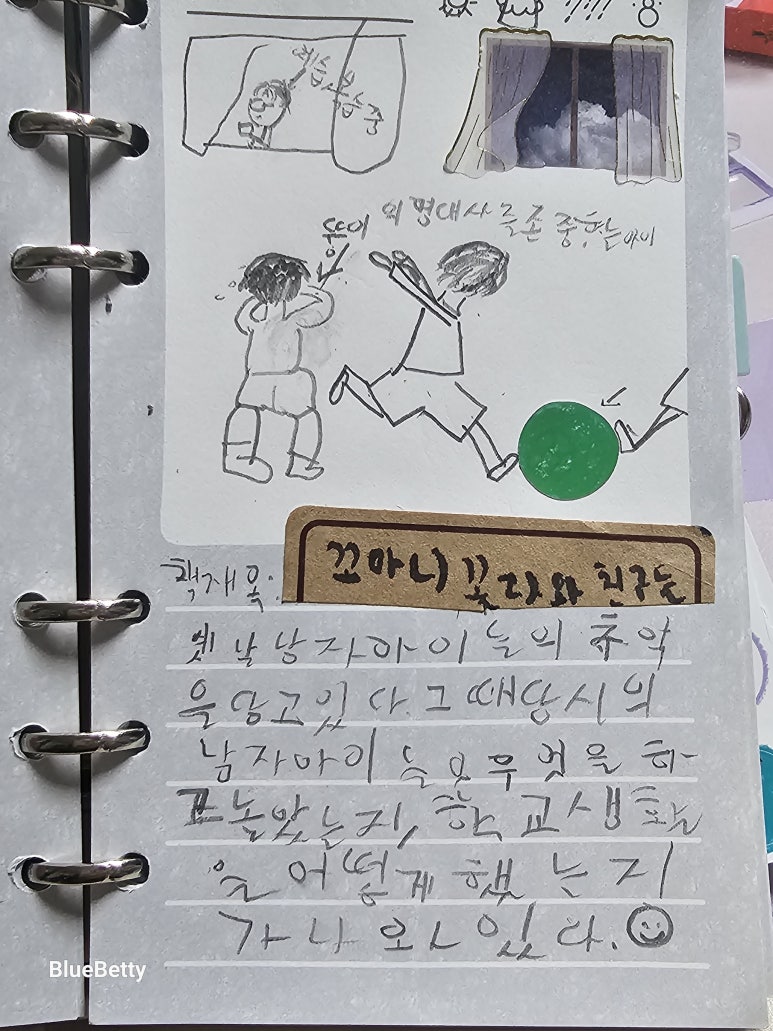 뚱이
의 명대사를 존중하는 아이
책제목:
꼬마니꼴라와 친구들
옛날 남자아이들의 추억
을 담고있다. 그때당시의
남자아이들은 무엇을 하
고놀았는지, 학교생활
을 어떻게 했는지
가 나와있다.
BlueBetty